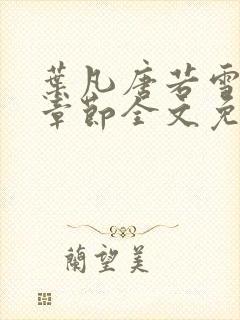 葉凡唐若雪
章節全文免
蘭望美